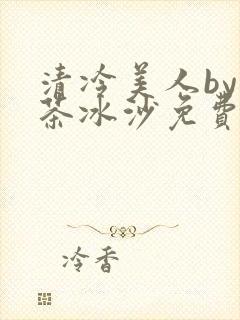 清冷美人by
茶冰沙免费
冷香